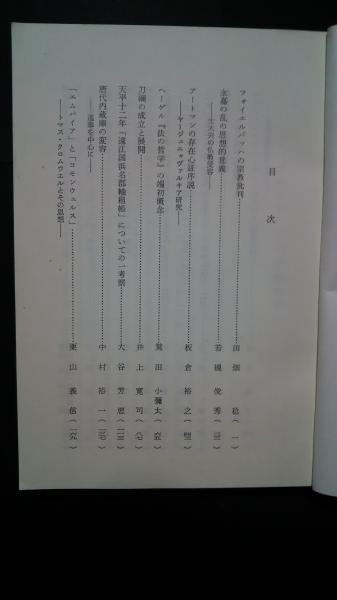 目次
フォイエルバッハの宗教批判……田畑稔（一）
永嘉の乱の思想的意義……若槻俊秀
――士大夫の仏教受容――
アートマンの存在心証序説……板倉裕之
――ヤージュニャヴァルキア研究――
ヘーゲル『法の哲学』の端初概念……鷲田小彌太
刀禰の成立と展開……井上寛司
天平十二年「遠江国浜名郡輸租帳」についての一考察……大谷芳恵
唐代内蔵庫の変容……中村裕一
――進奉を中心に――
「エムパイア」と「コモンウェルス」……栗山義信
――トマス・クロムウエルとその思想――